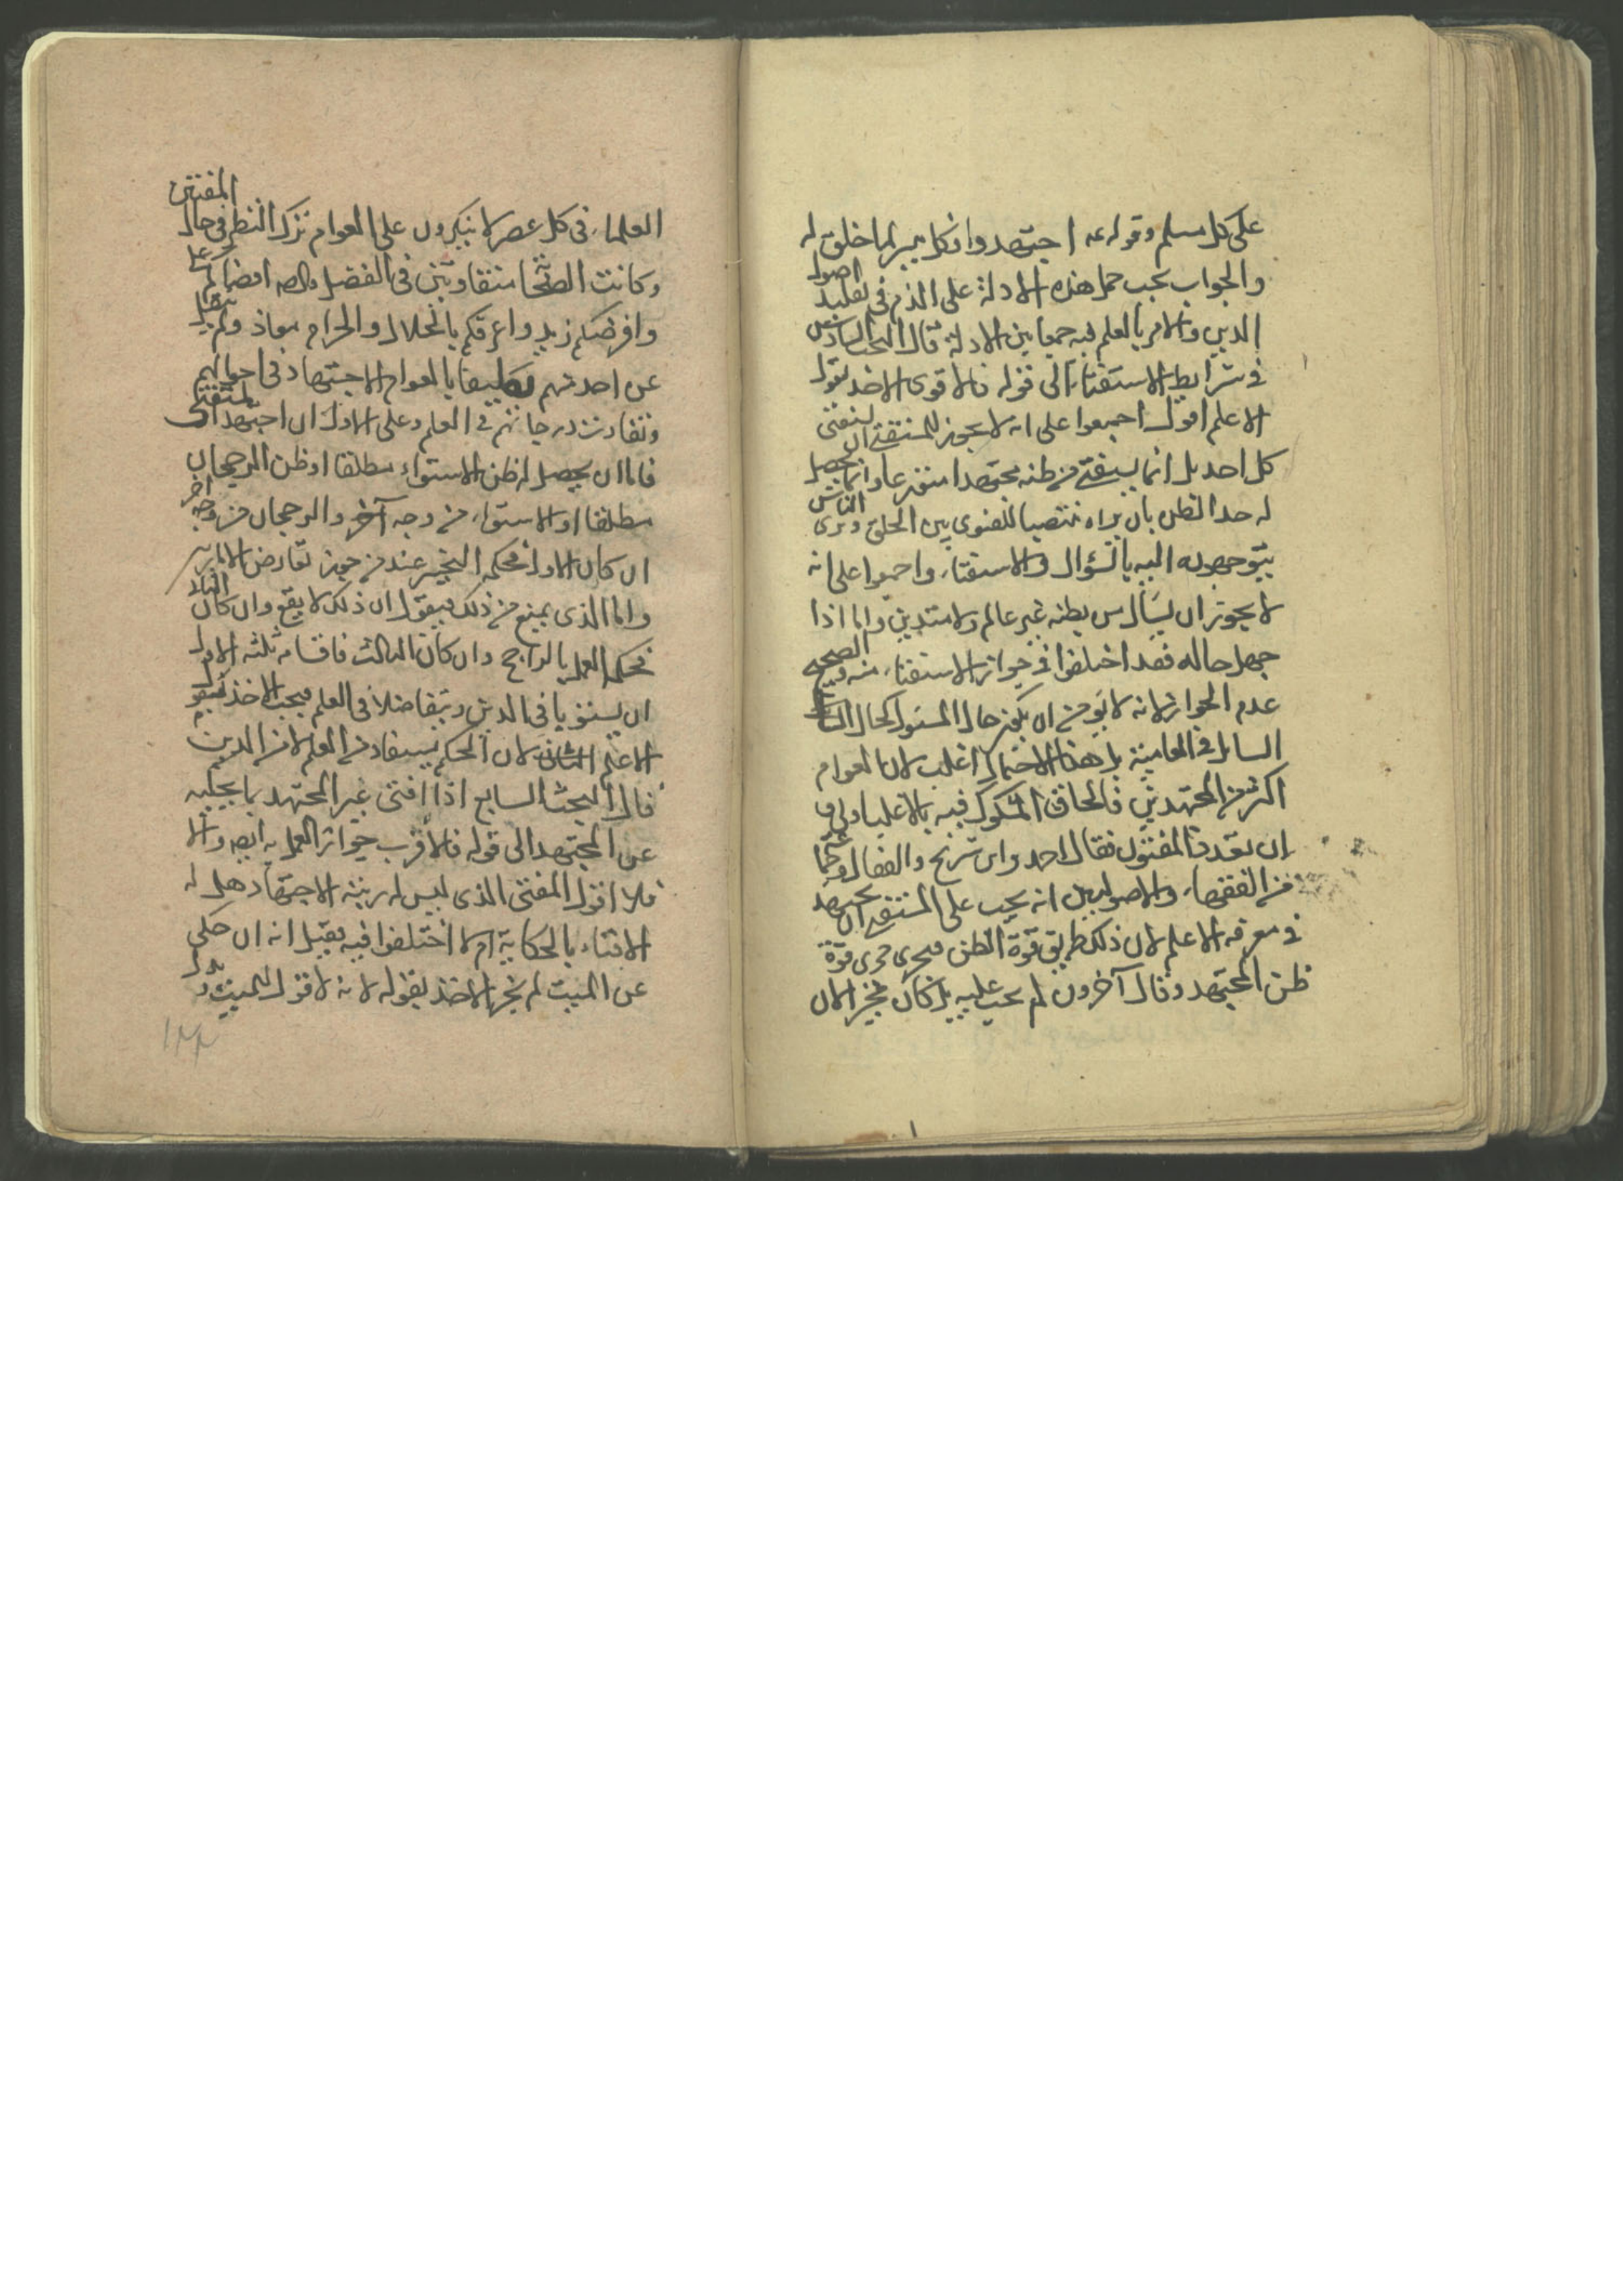 على كل مسلم وقوله عه اجتهدوا فكل ميسر لما خلق له
والجواب يجب حمل هذه الادلة على الذم في تقليد اصول
الدين والامر بالعلم فيه جمعا بين الادلة قال البحث السادس
في شرايط الاستفتاء الى قوله فالاقوى الاخذ بقول
الاعلم اقول اجمعوا على انه لا يجوز للمستفتي ان يستفتى
كل احد بل انما يستفتي من ظنه مجتهدا متورعا وانما يحصل
له هذا الظن بان يراه منتصبا للفتوى بين الخلق ويرى الناس
يتوجهون اليه بالسؤال والاستفتاء واجمعوا على انه
لا يجوز ان يسأل من يظنه غير عالم ولا متدين واما اذا
جهل حاله فقد اختلفوا في جواز الاستفتاء منه والصحيح
عدم الجواز لانه لا يؤمن ان يكون حال المسئول كحال
السايل في العامية بل هذا الاحتمال اغلب لان العوام
اكثر من المجتهدين فالحاق المشكوك فيه بالاغلب اولى و
ان تعدد المفتون فقال احمد وابن شريح والقفال وجماعة
من الفقهاء والاصوليين انه يجب على المستفتي ان يجتهد
في معرفة الاعلم لان ذلك طريق قوة الظن فيجرى مجرى قوة
ظن المجتهد وقال آخرون لم يجب عليه بل كان مخيرا لان
العلماء في كل عصر لا ينكرون على العوام ترك النظر في حال المفتين
وكانت الصحابة متفاوتين في الفضل وقال صه اقضاكم علي
وافرضكم زيد واعرفكم بالحلال والحرام معاذ ولم ينقل
عن احد منهم تكليفا بالعوام الاجتهاد في احوالهم
وتفاوت درجاتهم في العلم وعلى الاول ان اجتهد المستفتي
فاما ان يحصل له ظن الاستواء مطلقا او ظن الرجحان
مطلقا او الاستواء من وجه آخر والرجحان من وجه آخر
ان كان الاول فحكمه التخيير عند من جوز تعارض الامارتين
واما الذى يمنع من ذلك فيقول ان ذلك لا يقع وان كان الثاني
فحكمه العمل بالراجح وان كان الثالث فاقسامه ثلثه الاول
ان يستويا في الدين ويتفاضلا في العلم فيجب الاخذ بقول
الاعلم لان الحكم يستفاد من العلم لا من الدين
قال البحث السابع اذا افتى غير المجتهد بما يحكيه
عن المجتهد الى قوله فالاقرب جواز العمل به ايضه والا
فلا اقول المفتي الذى ليس له رتبه الاجتهاد هل له
الافتاء بالحكاية ام لا اختلفوا فيه فقيل انه ان حكى
عن الميت لم يجز الاخذ بقوله لانه لا قول للميت
١٢٢